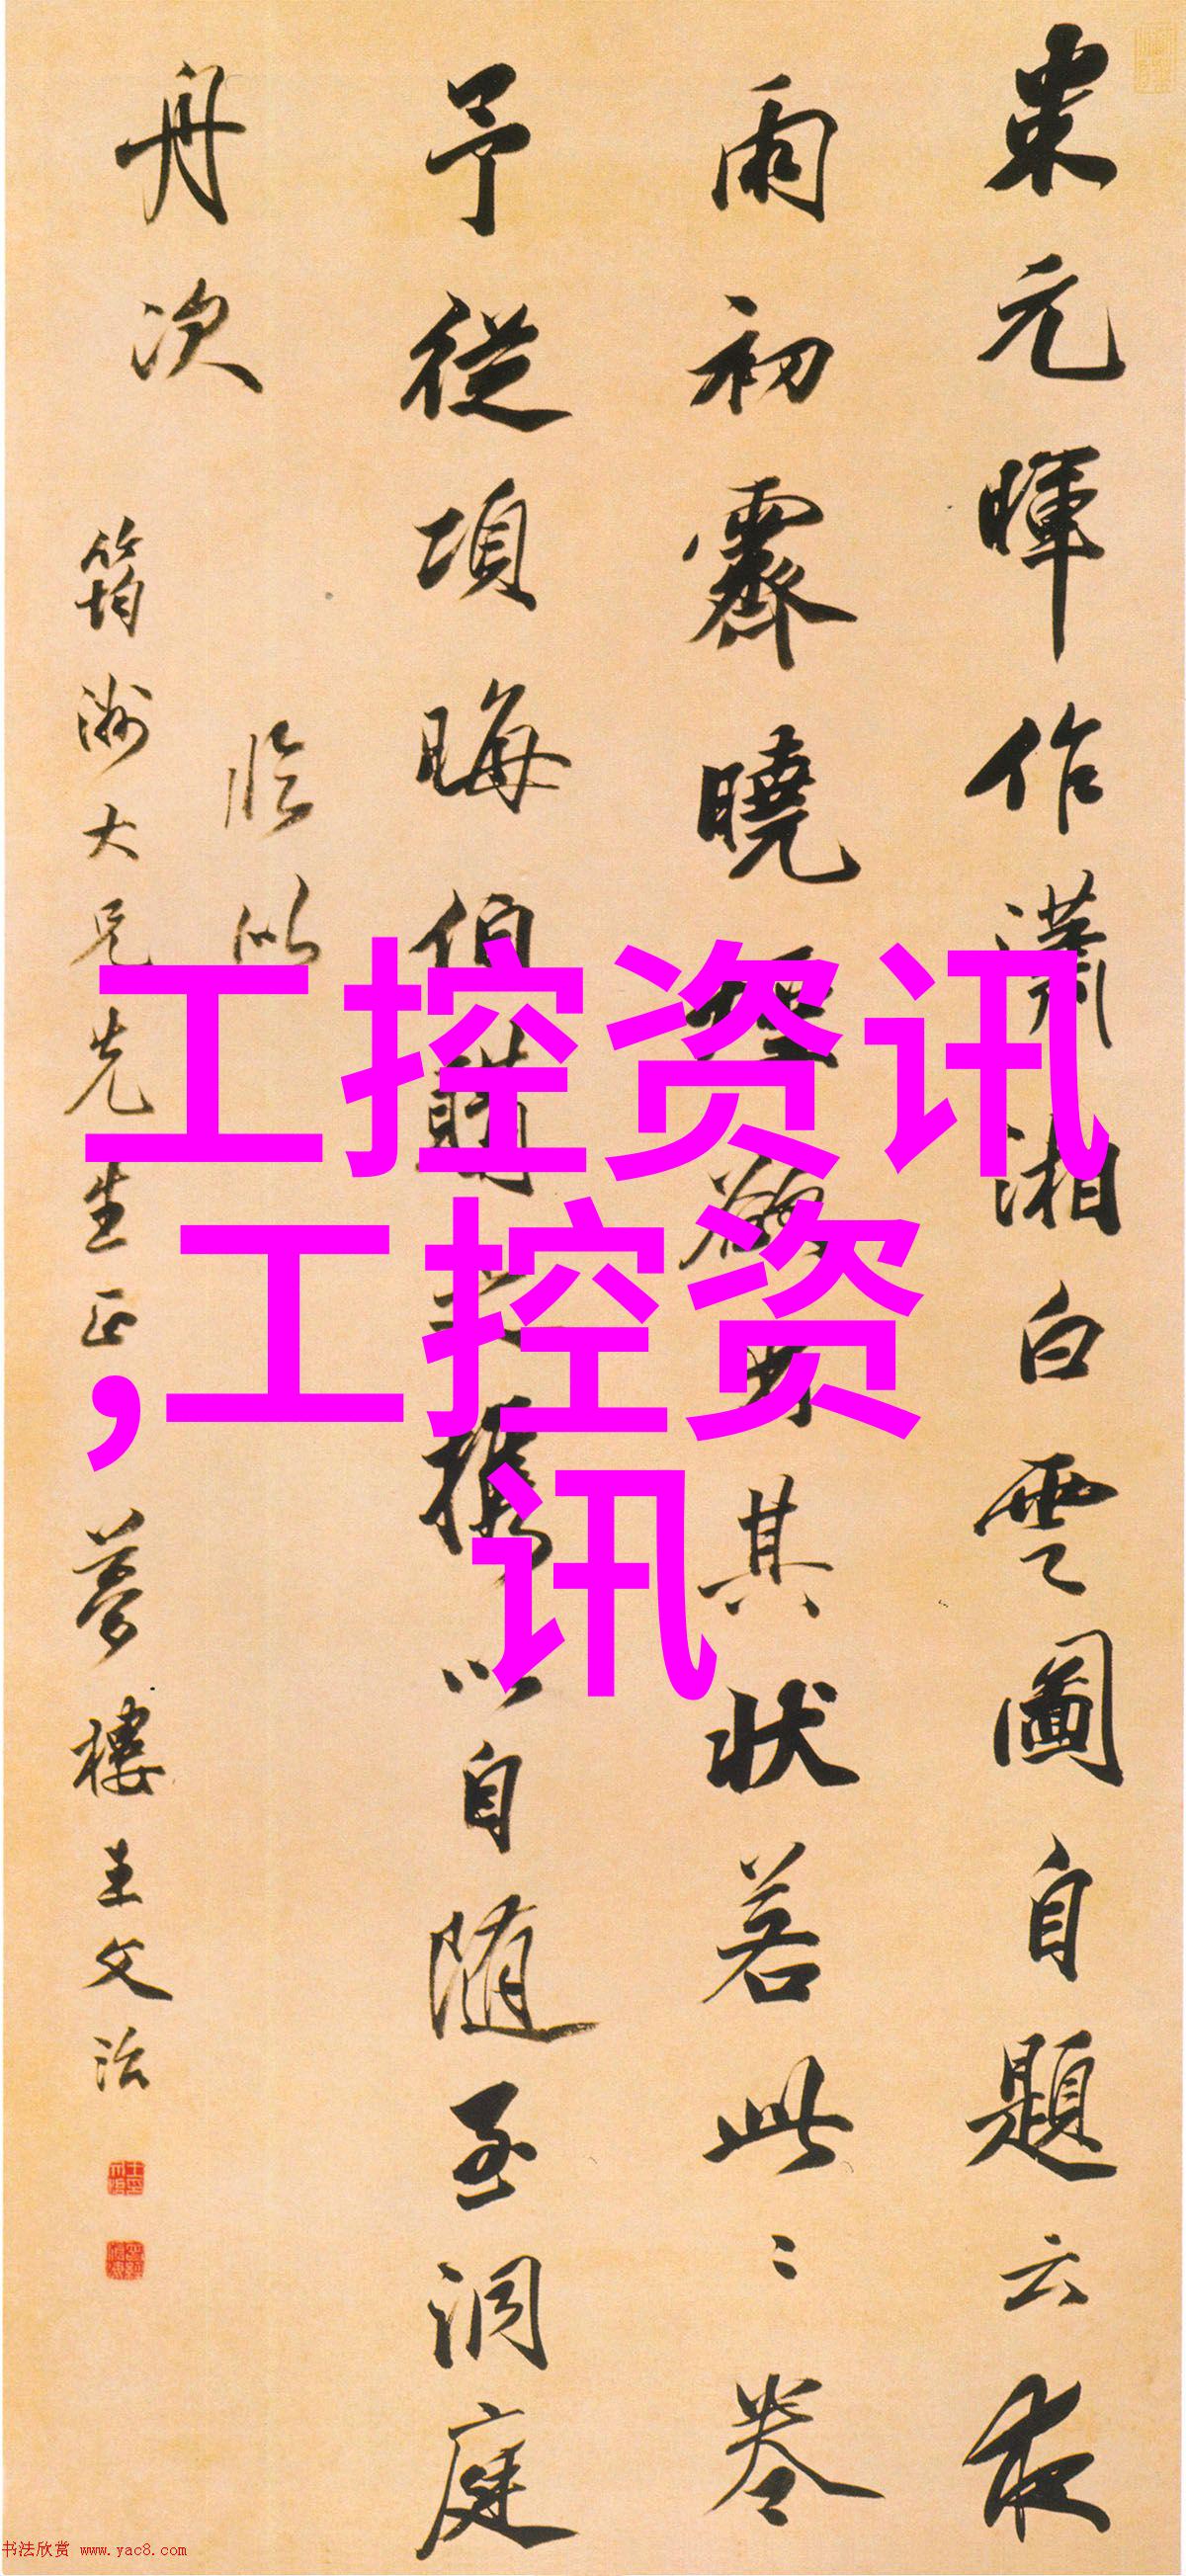 米元暉作瀟湘白雲圖自題云夜
雨初霽曉煙欲出其狀若此此卷
予從項晦伯購之攜以自随至洞庭
舟次
臨似
筠洲大兄先生正 夢樓王文治
工控资讯
,工控资
讯
书法欣赏 www.yac8.com